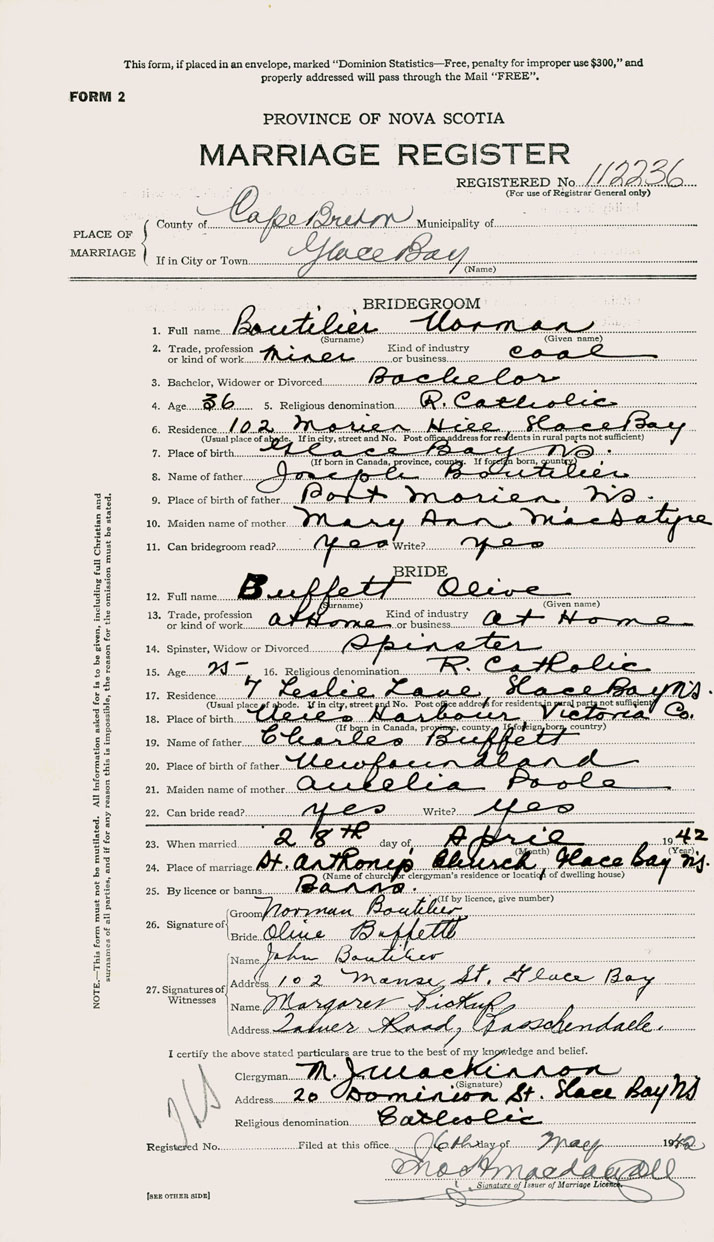 This form, if placed in an envelope, marked "Dominion Statistics—Free, penalty for improper use $300," and
properly addressed will pass through the Mail "FREE".
FORM 2
PROVINCE OF NOVA SCOTIA
MARRIAGE REGISTER
REGISTERED No. 112236
(For use of Registrar General only)
PLACE OF MARRIAGE
County of Cape Breton Municipality of
If in City or Town Glace Bay
(Name)
BRIDEGROOM
1. Full name Boutilier Norman
(Surname) (Given name)
2. Trade, profession or kind of work miner Kind of industry or business coal
3. Bachelor, Widower or Divorced Bachelor
4. Age 36 5. Religious denomination R. Catholic
6. Residence 102 Morien Hill, Glace Bay
(Usual place of abode. If in city, street and No. Post office address for residents in rural parts not sufficient)
7. Place of birth Glace Bay NS.
(If born in Canada, province, county. If foreign born, country)
8. Name of father Joseph Boutilier
9. Place of birth of father Port Morien NS.
10. Maiden name of mother Mary Ann
11. Can bridegroom read? yes Write? yes
BRIDE
12. Full name Buffett Olive
(Surname) (Given name)
13. Trade, profession or kind of work at Home Kind of industry or business at Home
14. Spinster, Widow or Divorced Spinster
15. Age 16. Religious denomination R. Catholic
17. Residence 7 Leslie Lane, Glace Bay NS.
(Usual place of abode. If in city, street and No. Post office address for residents in rural parts not sufficient)
18. Place of birth Neils Harbour, Victoria Co.
(If born in Canada, province, county. If foreign born, country)
19. Name of father Charles Buffett
20. Place of birth of father Newfoundland
21. Maiden name of mother Aurelia Poole
22. Can bride read? yes Write? yes
23. When married 28th day of April 1942
(Month) (Year)
24. Place of marriage St. Anthony's Church, Glace Bay NS.
(Name of church or clergyman's residence or location of dwelling house)
25. By licence or banns Banns.
(If by licence, give number)
26. Signature of
Groom Norman Boutilier
Bride Olive Buffett
27. Signatures of Witnesses
Name John Boutilier
Address 102 St. Glace Bay
Name Margaret
Address Tower Road, Passchendaele.
I certify the above stated particulars are true to the best of my knowledge and belief.
Clergyman M. J. MacKinnon
(Signature)
Address 20 Dominion St. Glace Bay NS
Religious denomination Catholic
Registered No. Filed at this office 6th day of May 1942
Signature of Issuer of Marriage Licence.
[SEE OTHER SIDE]
NOTE.—This form must not be mutilated. All information asked for is to be given, including full Christian and
surnames of all parties, and if for any reason this is impossible, the reason for the omission must be stated.